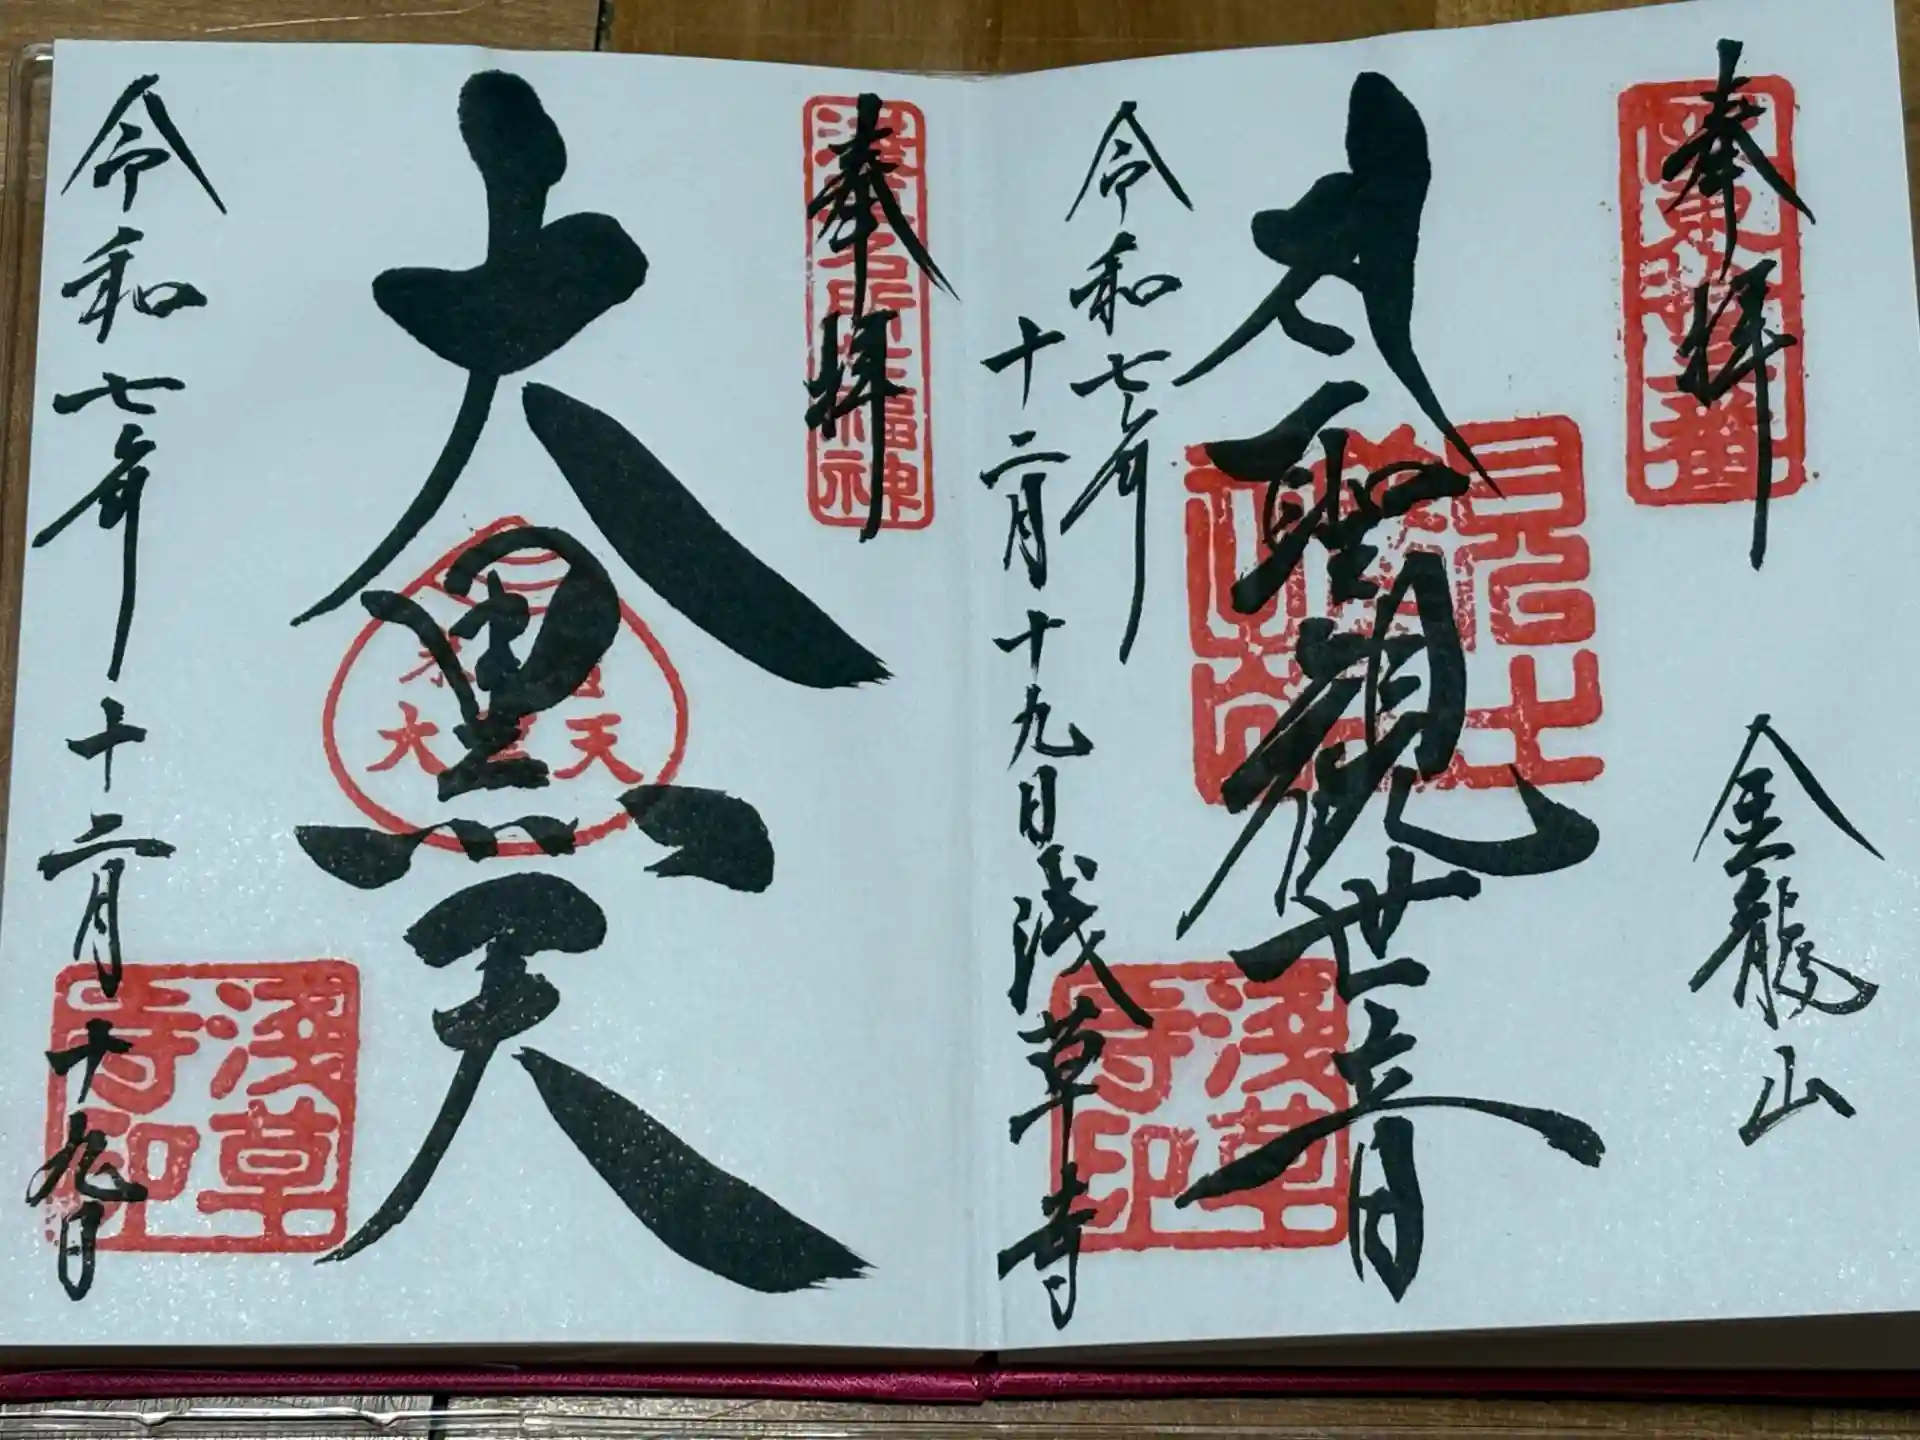 奉拝
坂東拾三番
金龍山
大聖観世音
令和七年
十二月十九日浅草寺
浅草寺印
奉拝
浅草名所七福神
大黒天
大黒天
令和七年十二月十九日
浅草寺印